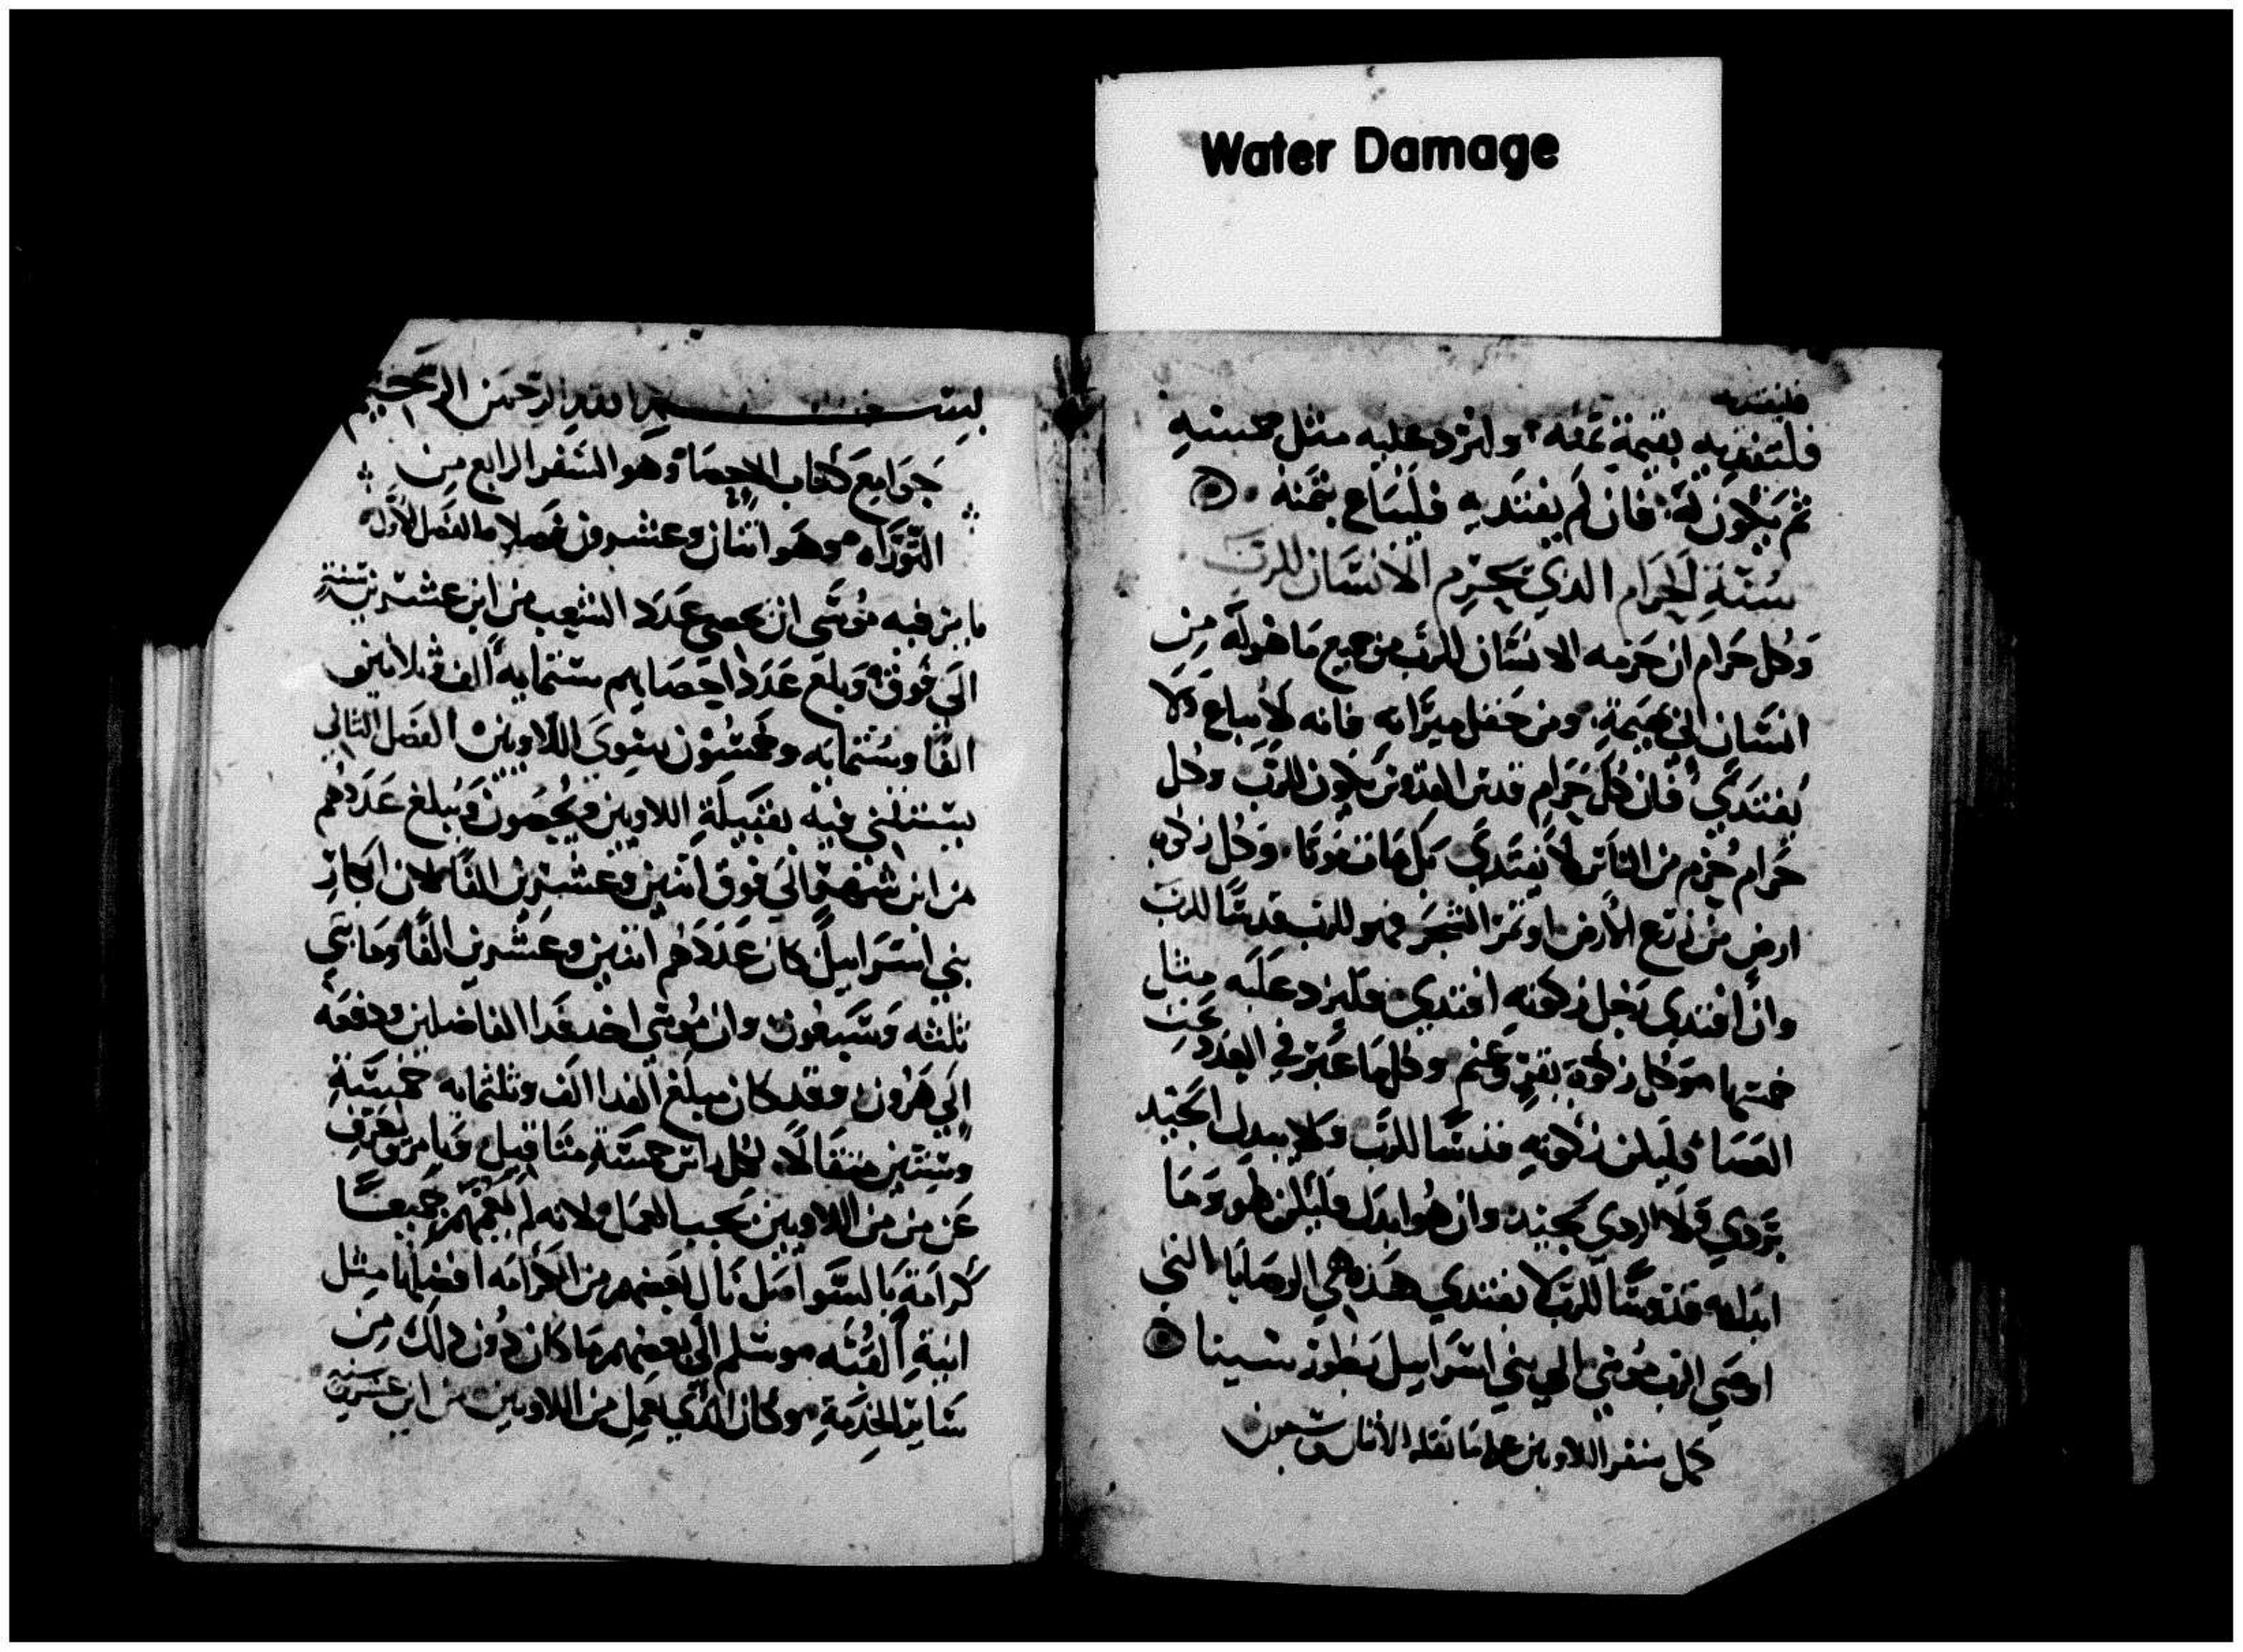 Water Damage
فليفتديه
فليفتديه بقيمة ثمنه وليزد عليه مثل خمسته
ثم يكون له فان لم يفتديه فليباع بثمنه
سنة الحرام الذي يحرم الانسان للرب
وكل حرام ان حرمه الانسان للرب من جميع ما هو له من
انسان الى بهيمة ومن حقل ميراثه فانه لا يباع ولا
يفتدي فان كل حرام قدس القدوس يكون للرب وكل
حرام يحرم من الناس لا يفتدي بل يمات موتا وكل زكوه
ارض من زرع الارض او ثمر الشجر فهو للرب قدسا للرب
وان افتدي رجل زكوته افتدي فليزد عليه مثل
خمستها وكل زكوة بقر وغنم وكل ما عبر في العدد تحت
العصا فليكن زكوته قدسا للرب ولا يبدل الجيد
بردي ولا الردي بجيد وان هو ابدل فليكن هو وما
ابدله قدوسا للرب لا يفتدي هذه هي الوصايا التي
اوصي الرب موسي الي بني اسرايل بطور سينا
كمل سفر اللاويين على ما نقله
بسم الله الرحمن الرحيم
جوامع كتاب الاحصا وهو السفر الرابع من
التوراه وهو اثنان وعشرون فصلا ما الفصل الاول
فيه موسي ان يحصي عدد الشعب من ابن عشرين سنة
الي فوق وبلغ عدد احصايهم ستمايه الف وثلاثين
الفا وستمايه وخمسون سوي اللاويين الفصل الثاني
يستثني فيه بقبيلة اللاويين ويحصون ويبلغ عددهم
من ابن شهر الي فوق اثنين وعشرين الفا لان ابكار
بني اسرايل كان عددهم اثنين وعشرين الفا ومايتي
ثلثه وسبعون وان موسي اخد فدا الفاضلين ودفعه
الي هرون وقد كان مبلغ الفدا الف وثلثمايه خمسة
وستين مثقالا لكل راس خمسة مثاقيل ويامر
عن من من اللاويين يجب العمل لانه لم جميعا
كرامة بالسوا بل نال بعضهم من الكرامه افضلها مثل
انية القبه وسلم الي بعضهم ما كان دون ذلك من
ساير الخدمة وكان الذي يعمل من اللاويين من ابن عشرين سنه